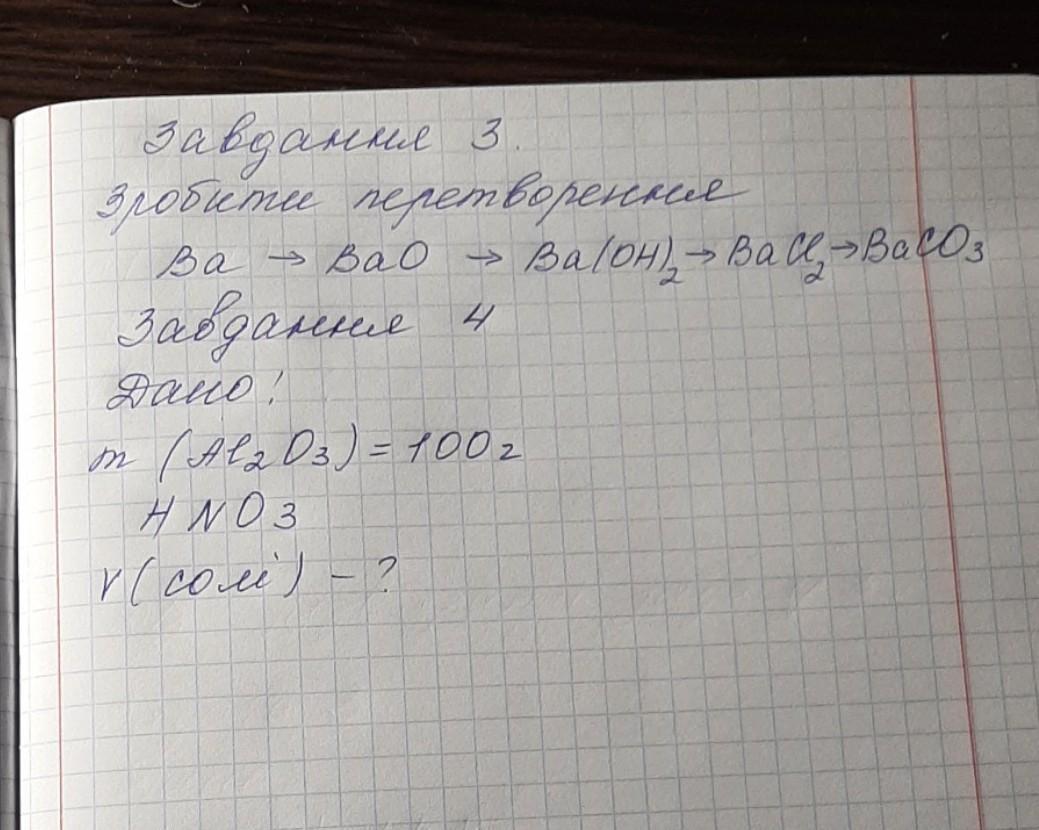 Завдання 3.
Зробити перетворення
Ba → BaO → Ba(OH)₂ → BaCl₂ → BaCO3
Завдання 4
Дано:
m (Al2O3) = 100г
HNO3
ν (солі) – ?